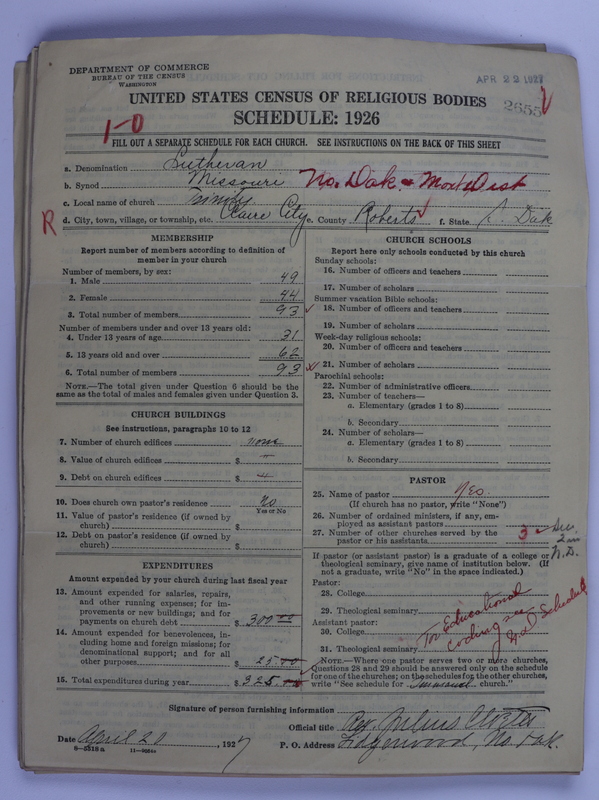 DEPARTMENT OF COMMERCE
BUREAU OF THE CENSUS
WASHINGTON
APR 22 1927
2655
UNITED STATES CENSUS OF RELIGIOUS BODIES
SCHEDULE: 1926
1-0
FILL OUT A SEPARATE SCHEDULE FOR EACH CHURCH. SEE INSTRUCTIONS ON THE BACK OF THIS SHEET
a. Denomination Lutheran
b. Synod Missouri No. Dak. & Mont Dist
c. Local name of church Trinity
R d. City, town, village, or township, etc. Claire City e. County Roberts f. State S. Dak
MEMBERSHIP
Report number of members according to definition of
member in your church
Number of members, by sex:
1. Male 49
2. Female 44
3. Total number of members 93
Number of members under and over 13 years old:
4. Under 13 years of age 31
5. 13 years old and over 62
6. Total number of members 93
NOTE.—The total given under Question 6 should be
same as the total of males and females given under Question 3.
CHURCH BUILDINGS
See instructions, paragraphs 10 to 12
7. Number of church edifices none
8. Value of church edifices $ "
9. Debt on church edifices $
10. Does church own pastor's residence No
Yes or No
11. Value of pastor's residence (if owned by
church) $
12. Debt on pastor's residence (if owned by
church) $
EXPENDITURES
Amount expended by your church during last fiscal year
13. Amount expended for salaries, repairs,
and other running expenses; for im-
provements or new buildings; and for
payments on church debt $ 300.00
14. Amount expended for benevolences, in-
cluding home and foreign missions; for
denominational support; and for all
other purposes $ 25.00
15. Total expenditures during year $ 325.00
CHURCH SCHOOLS
Report here only schools conducted by this church
Sunday schools:
16. Number of officers and teachers
17. Number of scholars
Summer vacation Bible schools:
18. Number of officers and teachers
19. Number of scholars
Week-day religious schools:
20. Number of officers and teachers
21. Number of scholars
Parochial schools:
22. Number of administrative officers
23. Number of teachers—
a. Elementary (grades 1 to 8)
b. Secondary
24. Number of scholars—
a. Elementary (grades 1 to 8)
b. Secondary
PASTOR
25. Name of pastor Yes.
(If church has no pastor, write "None")
26. Number of ordained ministers, if any, em-
ployed as assistant pastors
27. Number of other churches served by the
pastor or his assistants 3
2 in
N.D.
If pastor (or assistant pastor) is a graduate of a college or
theological seminary, give name of institution below. (If
not a graduate, write "No" in the space indicated.)
Pastor:
28. College
29. Theological seminary
Assistant pastor:
30. College
31. Theological seminary
For Educational
coding see
Schedule
NOTE.—Where one pastor serves two or more churches,
Questions 28 and 29 should be answered only on the schedule
for one of the churches; on the schedules for the other churches,
write "See schedule for Immanuel church."
Signature of person furnishing information
Official title Rev. Julius
Date April 20, 1927 P. O. Address Lidgerwood, No. Dak.
8-5318a 11-9054a